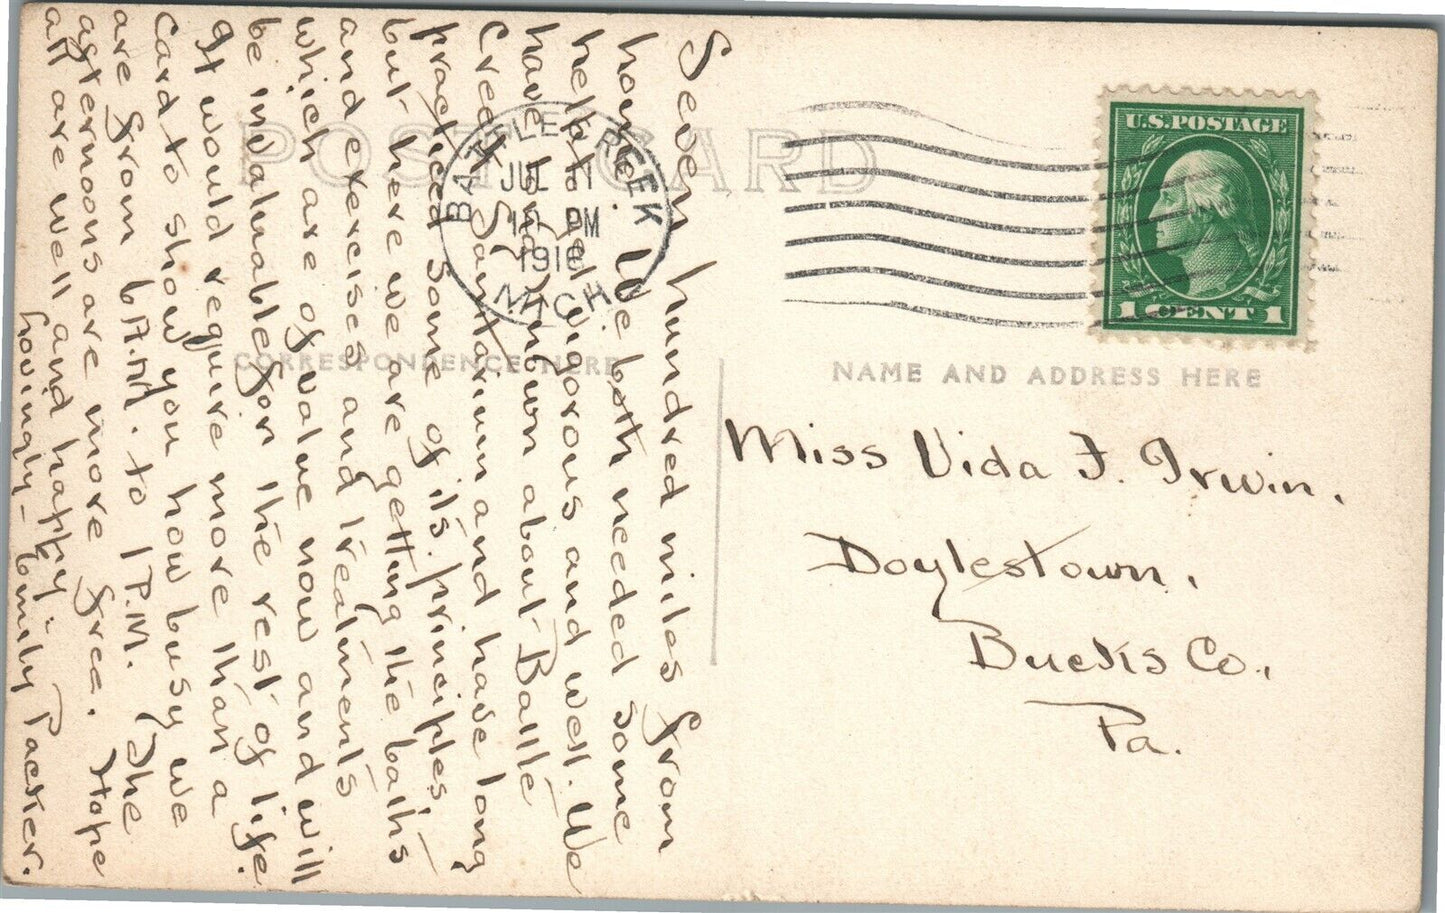 POST CARD
BATTLE CREEK
JUL 11
PM
191
MICH
U.S. POSTAGE
1 CENT 1
CORRESPONDENCE HERE
NAME AND ADDRESS HERE
Seven hundred miles from
home. We both needed some
help to feel vigorous and well. We
have long known about Battle
Creek Sanitarium and have long
practiced some of its principles,
but here we are getting the baths
and exercises and treatments
which are of value now and will
be invaluable for the rest of life.
It would require more than a
card to show you how busy we
are from 6 A.M. to 1 P.M. The
afternoons are more free. Hope
all are well and happy.
Lovingly - Emily Packer.
Miss Vida F. Irwin,
Doylestown,
Bucks Co.,
Pa.